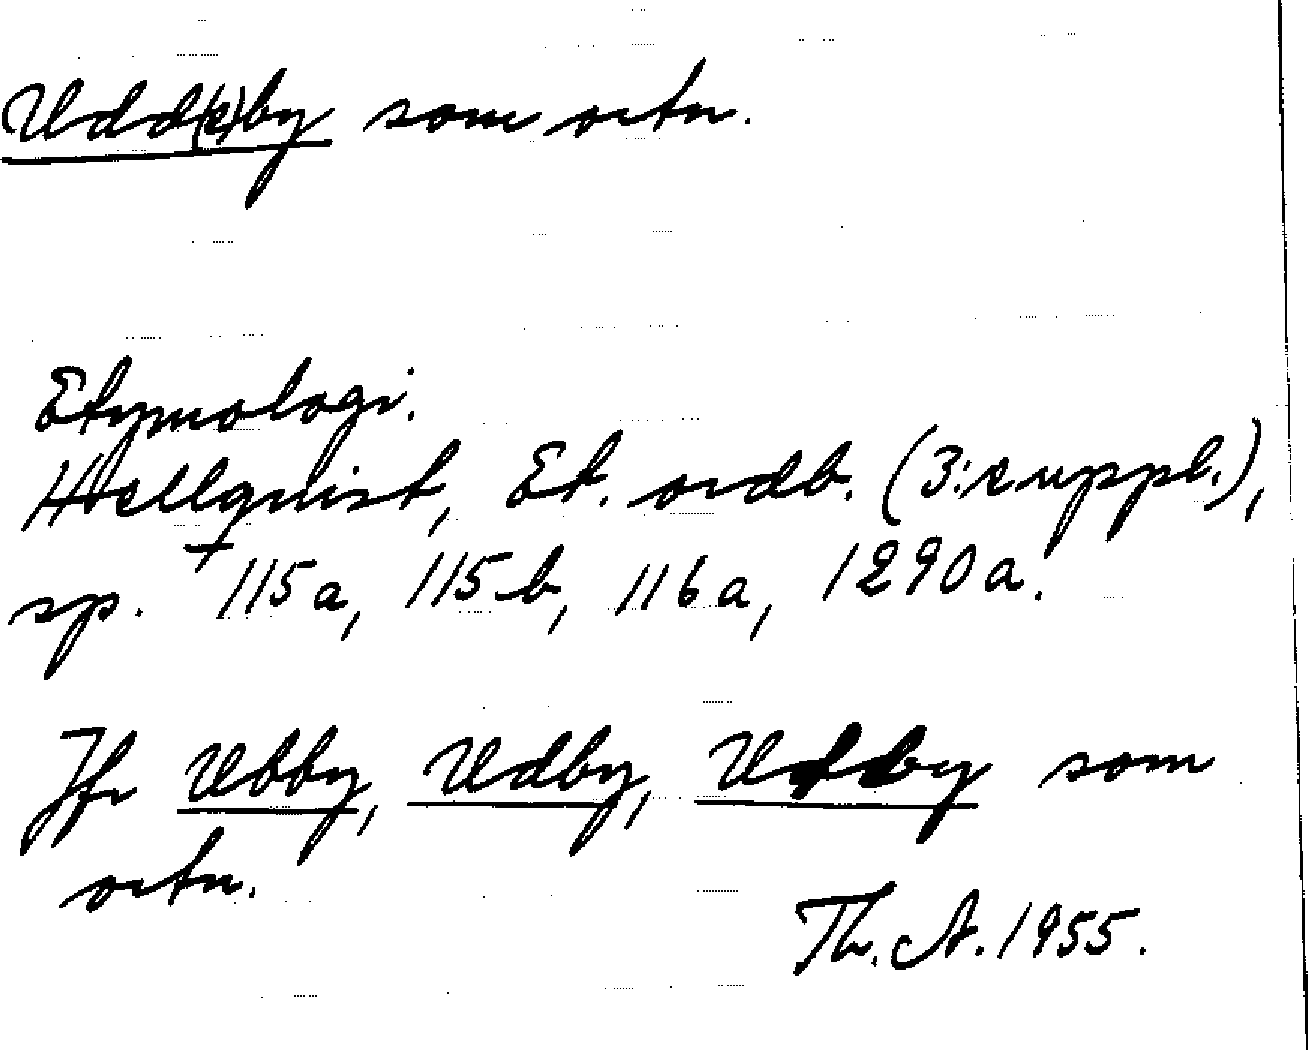 Udd(e)by som ortn.
Etymologi.
Hellquist, Et. ordb. (3:e uppl.),
sp. +115a, 115b, 116a, 1290a.
Jfr Ubby, Udby, Utby som
ortn.
Th. A. 1955.